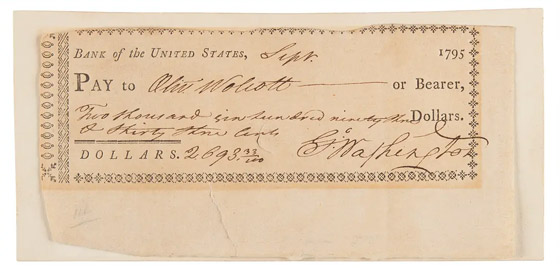 BANK of the UNITED STATES, Sept. 1795
PAY to Oliv Wolcott or Bearer,
Two thousand six hundred ninety three Dollars.
& thirty three Cents
DOLLARS. 2693 33/100 Go Washington